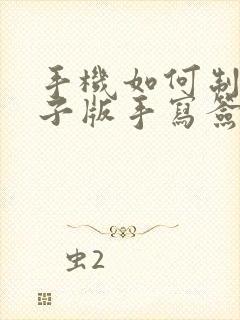 手機如何制
子版手寫簽
虫2